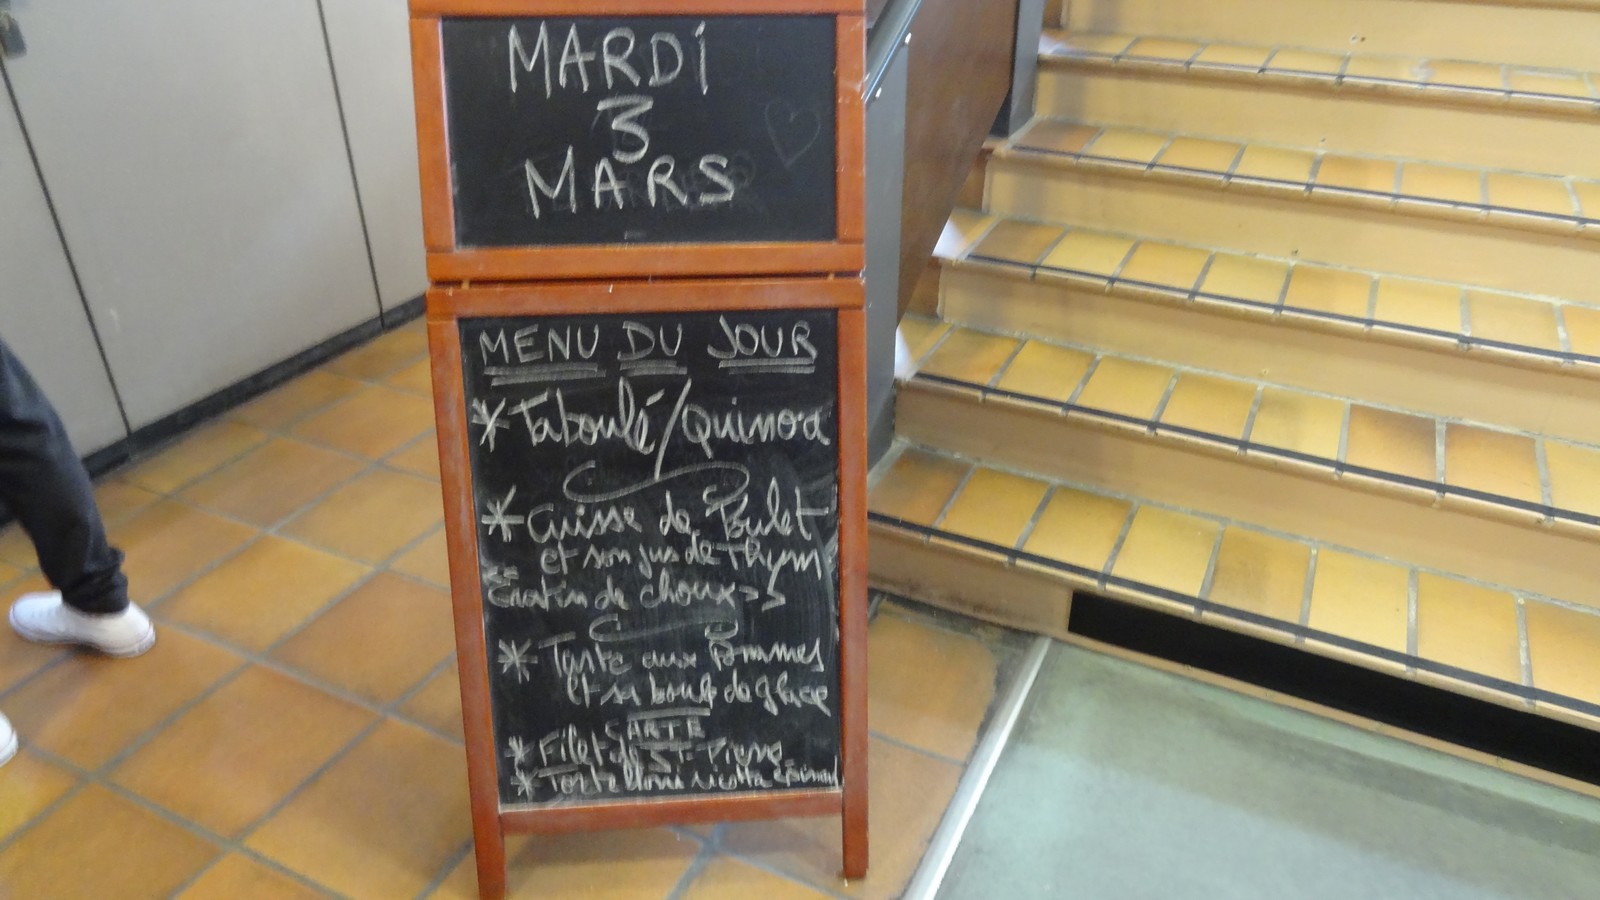 MARDI
3
MARS
MENU DU JOUR
* Taboulé/quinoa
* Cuisse de Poulet
et son jus de Thym
Gratin de choux-
* Tarte aux Pommes
et sa boule de glace
CARTE
* Filet de ST-Pierre
* Tortelloni ricotta épinard